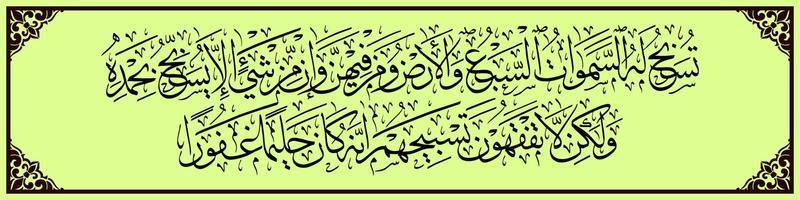 تُسَبِّحُ لَهُ السَّمَوَاتُ السَّبْعُ وَالْأَرْضُ وَمَن فِيهِنَّ وَإِن مِّن شَيْءٍ إِلَّا يُسَبِّحُ بِحَمْدِهِ
وَلَكِن لَّا تَفْقَهُونَ تَسْبِيحَهُمْ إِنَّهُ كَانَ حَلِيمًا غَفُورًا